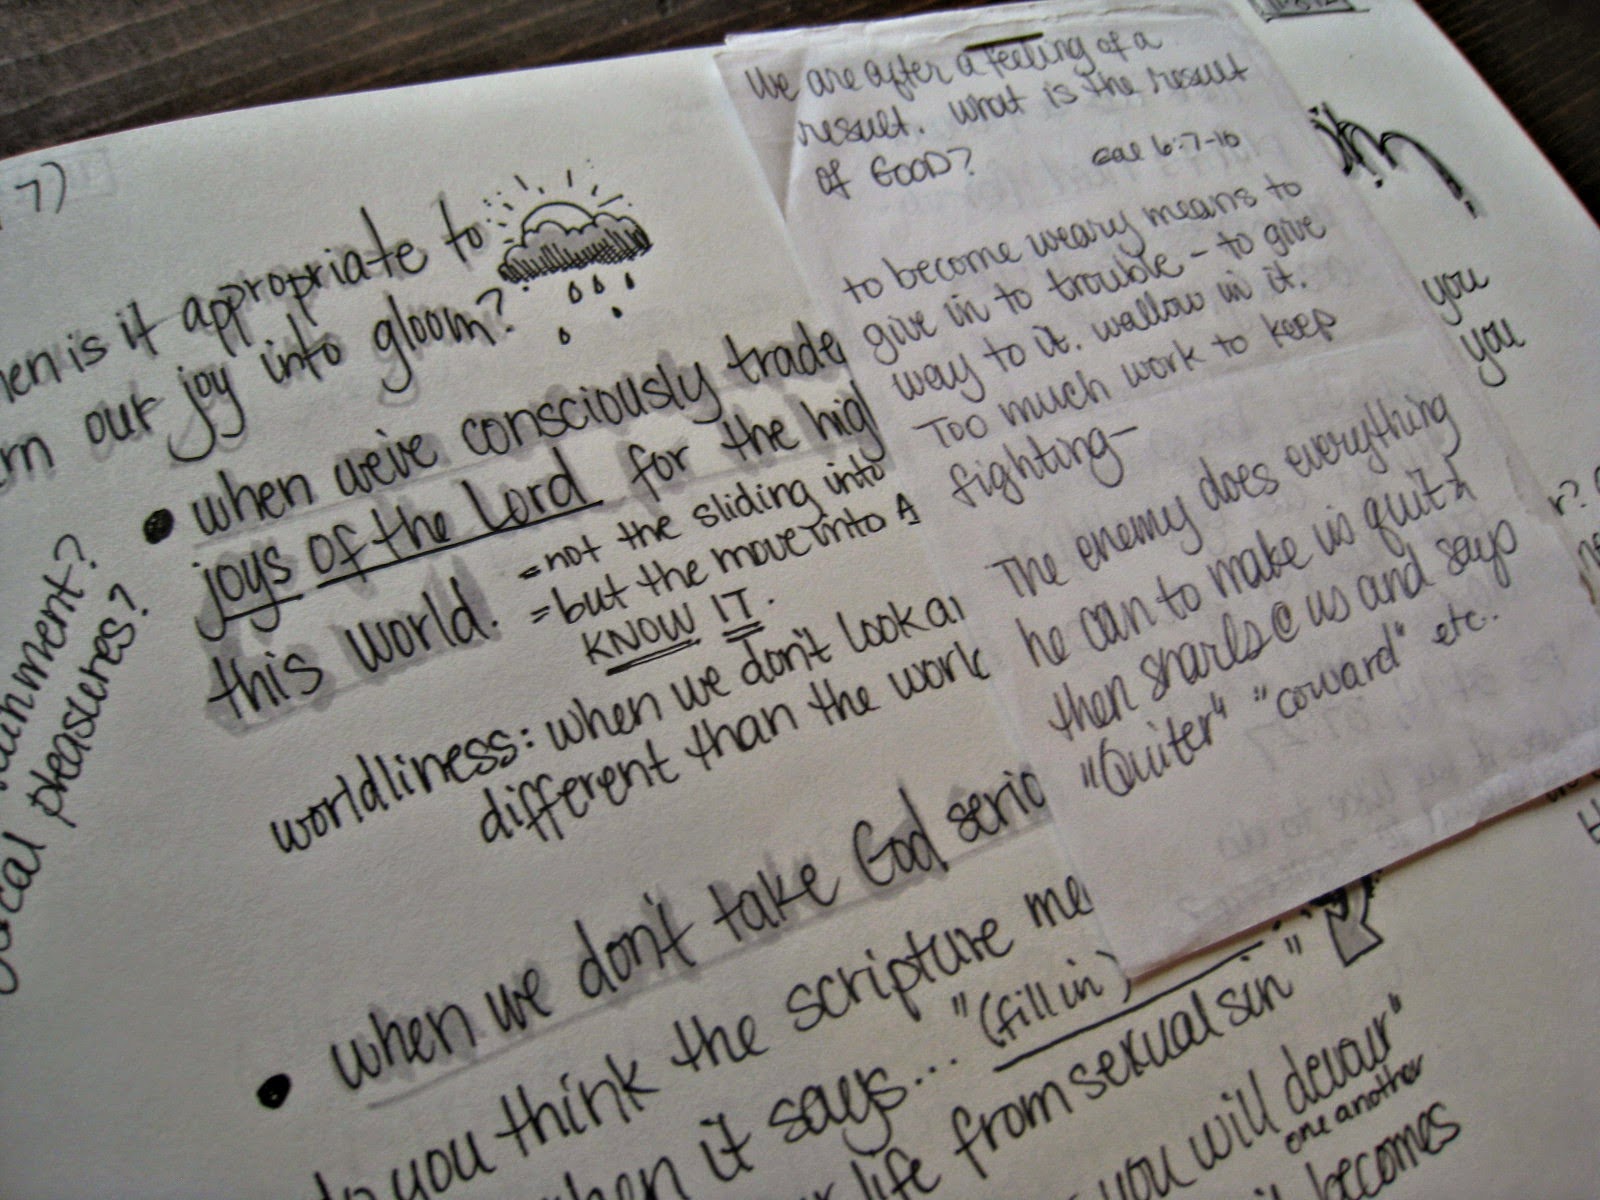 7)
hen is it appropriate to
rn our joy into gloom?
• when we've consciously trade
joys of the Lord for the hig
this world.
= not the sliding into
= but the move into A
KNOW IT.
worldliness: when we don't look a
different than the worl
• when we don't take God serio
do you think the scripture me
hen it says... "(fill in)
life from sexual sin"
you will devour"
one another
becomes
unment?
cal pleasures?
We are after a feeling of a
result. What is the result
of GOOD?
Gal 6:7-10
to become weary means to
give in to trouble - to give
way to it. wallow in it.
Too much work to keep
fighting-
The enemy does everything
he can to make us quit &
then snarls @ us and says
"Quiter" "coward" etc.
you
you
r?